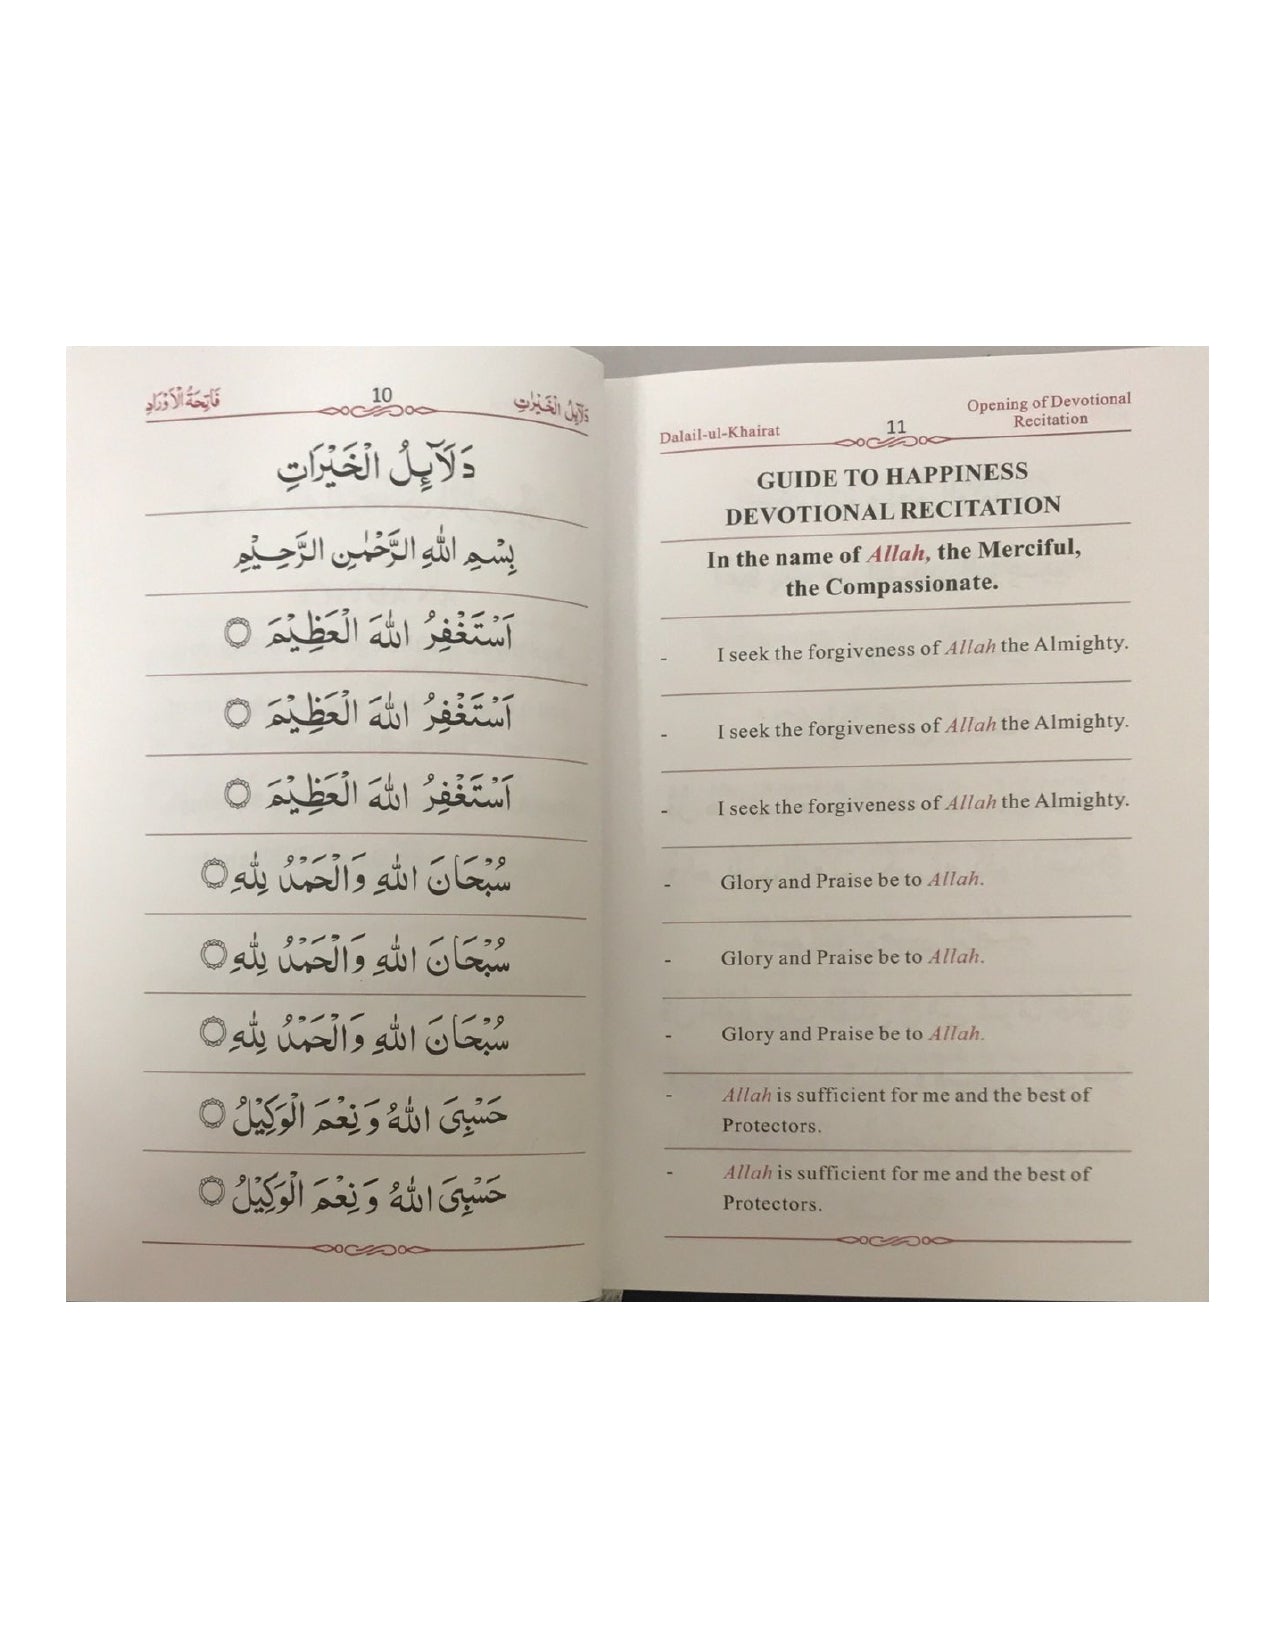 دَلَآئِلُ الْخَيْرَاتِ
10
فَاتِحَةُ الْاَوْرَادِ
دَلَآئِلُ الْخَيْرَاتِ
بِسْمِ اللّٰهِ الرَّحْمٰنِ الرَّحِيْمِ
اَسْتَغْفِرُ اللّٰهَ الْعَظِيْمَ ۝
اَسْتَغْفِرُ اللّٰهَ الْعَظِيْمَ ۝
اَسْتَغْفِرُ اللّٰهَ الْعَظِيْمَ ۝
سُبْحَانَ اللّٰهِ وَالْحَمْدُ لِلّٰهِ ۝
سُبْحَانَ اللّٰهِ وَالْحَمْدُ لِلّٰهِ ۝
سُبْحَانَ اللّٰهِ وَالْحَمْدُ لِلّٰهِ ۝
حَسْبِىَ اللّٰهُ وَ نِعْمَ الْوَكِيْلُ ۝
حَسْبِىَ اللّٰهُ وَ نِعْمَ الْوَكِيْلُ ۝
Dalail-ul-Khairat
11
Opening of Devotional
Recitation
GUIDE TO HAPPINESS
DEVOTIONAL RECITATION
In the name of Allah, the Merciful,
the Compassionate.
- I seek the forgiveness of Allah the Almighty.
- I seek the forgiveness of Allah the Almighty.
- I seek the forgiveness of Allah the Almighty.
- Glory and Praise be to Allah.
- Glory and Praise be to Allah.
- Glory and Praise be to Allah.
- Allah is sufficient for me and the best of
Protectors.
- Allah is sufficient for me and the best of
Protectors.